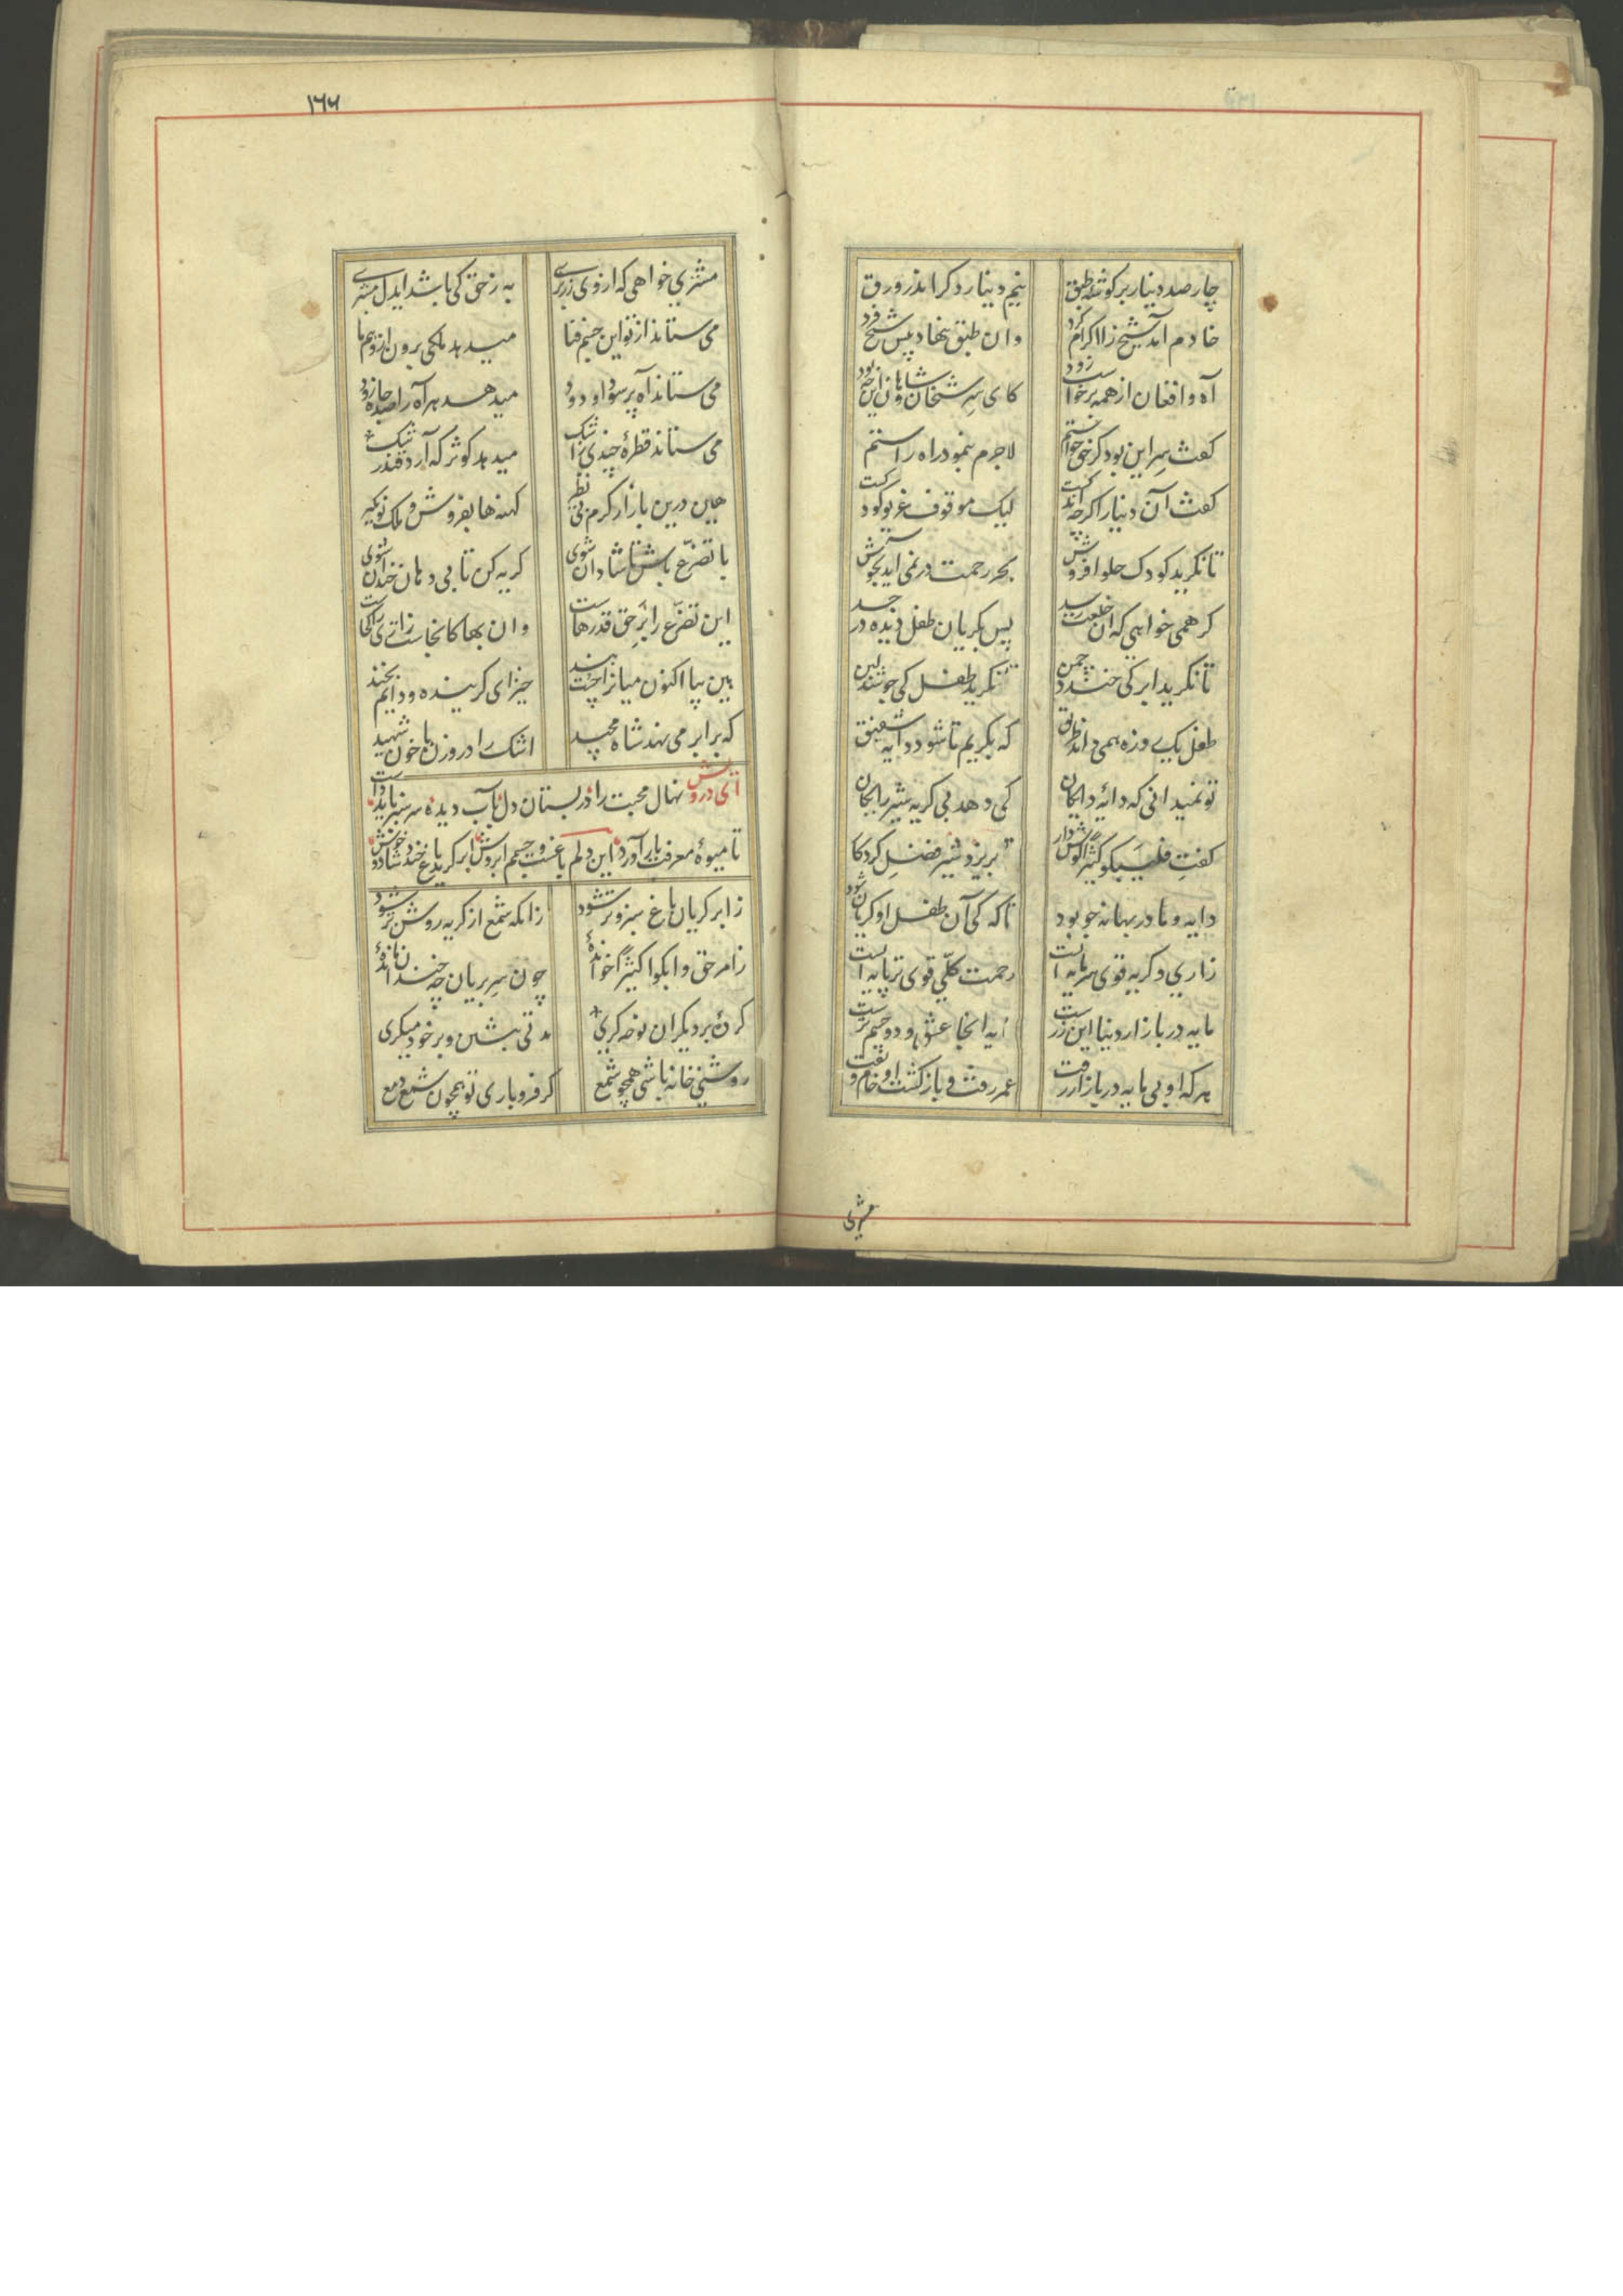 چار صد دینار بر گوشه طبق نیم دینار دگر اندر ورق
خادم آمد شیخ را اکرام کرد وان طبق بنهاد پیش شیخ فرد
آه و افغان از همه برخاست زود کای سر شیخان و شاهان این چه بود
گفت سرِ این بود کز حق خواستم لاجرم بنمود راه راستم
گفت آن دینار اگرچه اندکست لیک موقوف غریو کودکست
تا نگرید کودک حلوا فروش بحر رحمت در نمی اید بجوش
گر همی خواهی که آن خلعت رسد پس بگریان طفل دیده در جسد
تا نگرید ابر کی خندد چمن تا نگرید طفل کی جوشد لبن
طفل یک روزه همی داند طریق که بگریم تا شود دایه شفیق
تو نمیدانی که دایهٔ دایگان کی دهد بی گریه شیر رایگان
گفت فلیبکوا کثیرًا گوش دار تا بریزد شیر فضل کردگار
دایه و مادر بهانه جو بود تا که کی آن طفل او گریان شود
زاری و گریه قوی سرمایه ایست رحمت کلّی قوی تر دایه ایست
مایه در بازار دنیا این زرست مایه انجا عشق و دو چشم ترست
هرکه او بی مایه در بازار رفت عمر رفت و بازگشت او خام و تفت
مشتری
١٦٦
مشتری خواهی که از وی زر بری به ز حق کی باشد ایدل مشتری
می ستاند از تو این جسم فنا میدهد ملکی برون از وهم ما
می ستاند آه پر سودا و دود میدهد هر آه را صد جاه زود
می ستاند قطرهٔ چندی ز اشک میدهد کوثر که آرد قند رشک
هین درین بازار گرم بی نظیر کهنه ها بفروش و ملک نو بگیر
با تضرّع باش تا شادان شوی گریه کن تا بی دهان خندان شوی
این تضرّع را بَرِ حق قدرهاست وان بها کانجاست زاری را کجاست
هین بیا اکنون میانرا چست بند خیز ای گرینده و دایم بخند
که برابر می نهد شاه مجید اشک را در وزن با خون شهید
ای درویش نهال محبت را در بستان دل بآب دیده سرسبز باید داشت
تا میوهٔ معرفت بار آورد این دلم باغست و چشمم ابروش ابر گرید باغ خندد شاد و خوش
ز ابر گریان باغ سبز و تر شود زانکه شمع از گریه روشن تر شود
ز امر حق وابکوا کثیرًا خواندهٔ چون سر بریان چه خندان ماندهٔ
کردهٔ بر دیگران نوحه گری مدتی بنشین و بر خود میگری
روشنی خانه باشی همچو شمع گر فرو باری تو همچون شمع دمع